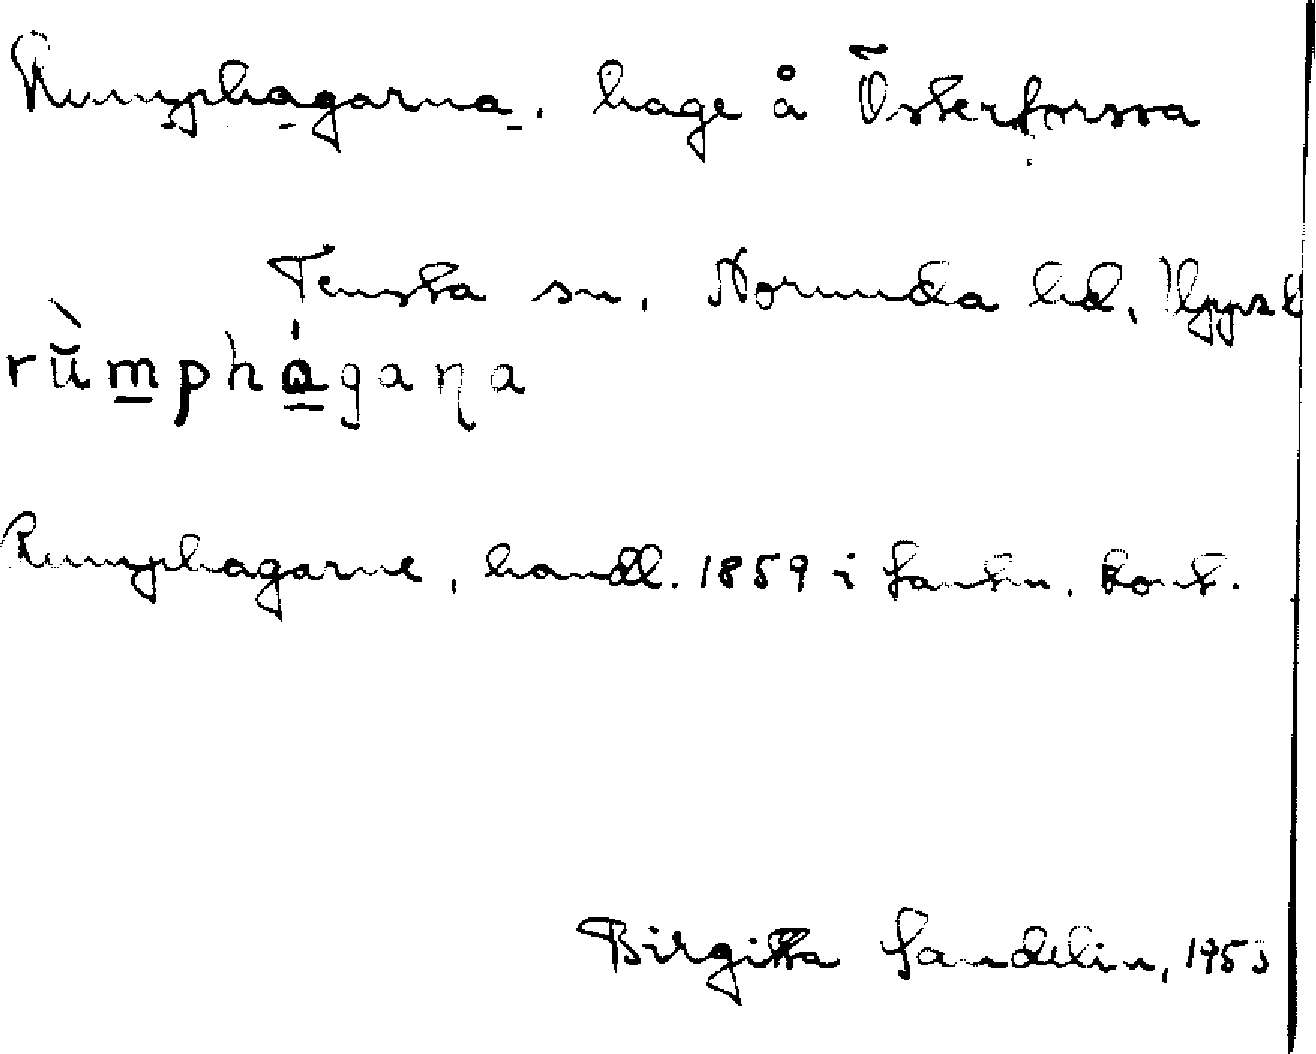 Rumphagarna, hage å Österforssa
Tensta sn, Norunda hd, Uppsl
rŭ̀mphágaƞa
Rumphagarne, handl. 1859 i Lantm. kont.
Birgitta Sandelin, 1953